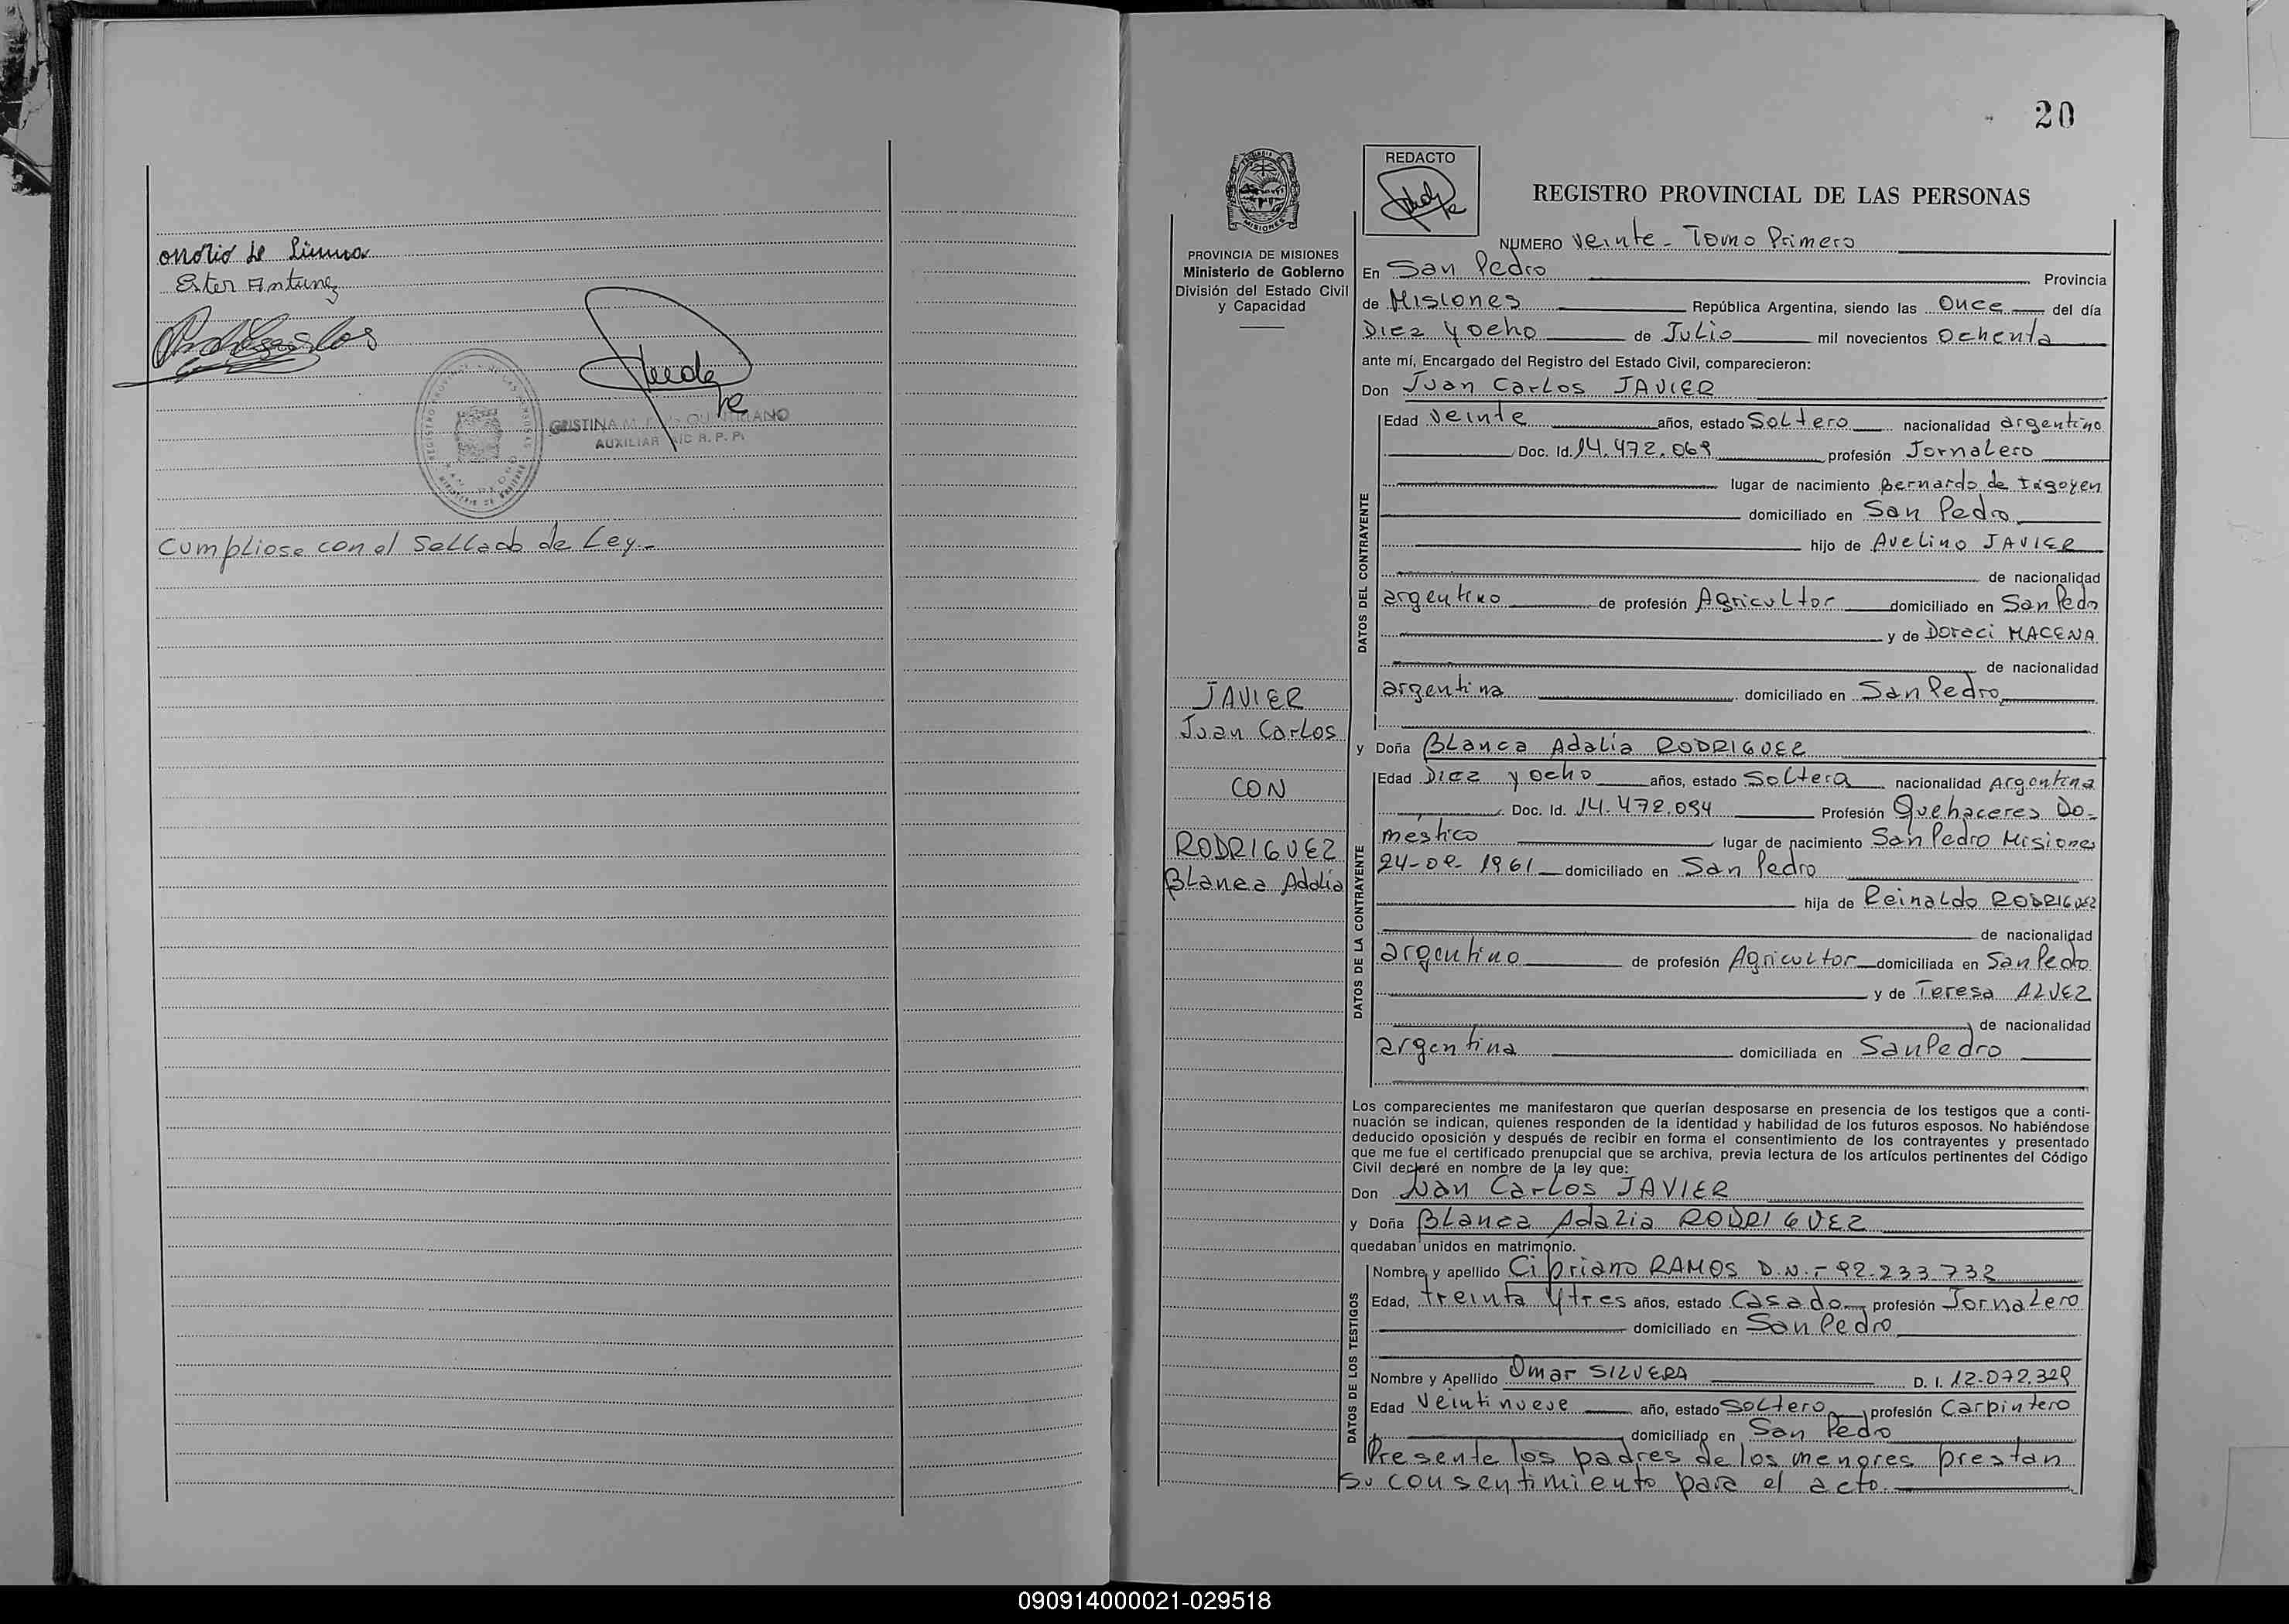 onorio de
Ester Antunez
CRISTINA M.
AUXILIAR A/C R. P. P.
Cumpliose con el Sellado de Ley.-
20
REDACTO
REGISTRO PROVINCIAL DE LAS PERSONAS
PROVINCIA DE MISIONES
Ministerio de Gobierno
División del Estado Civil
y Capacidad
JAVIER
Juan Carlos
CON
RODRIGUEZ
Blanca Adalia
NUMERO veinte - Tomo Primero
En San Pedro Provincia
de Misiones República Argentina, siendo las Once del día
Diez y ocho de Julio mil novecientos Ochenta
ante mí, Encargado del Registro del Estado Civil, comparecieron:
Don Juan Carlos JAVIER
DATOS DEL CONTRAYENTE
Edad veinte años, estado Soltero nacionalidad argentino
Doc. Id. 14.472.069 profesión Jornalero
lugar de nacimiento Bernardo de Irigoyen
domiciliado en San Pedro
hijo de Avelino JAVIER
de nacionalidad
argentino de profesión Agricultor domiciliado en San Pedro
y de Doraci MACENA
de nacionalidad
argentina domiciliado en San Pedro
y Doña Blanca Adalia RODRIGUEZ
DATOS DE LA CONTRAYENTE
Edad Diez y ocho años, estado Soltera nacionalidad Argentina
Doc. Id. 14.472.094 Profesión Quehaceres Do-
méstico lugar de nacimiento San Pedro Misiones
24- 1961 domiciliado en San Pedro
hija de Reinaldo RODRIGUEZ
de nacionalidad
argentino de profesión Agricultor domiciliada en San Pedro
y de Teresa ALVEZ
de nacionalidad
argentina domiciliada en San Pedro
Los comparecientes me manifestaron que querían desposarse en presencia de los testigos que a conti-
nuación se indican, quienes responden de la identidad y habilidad de los futuros esposos. No habiéndose
deducido oposición y después de recibir en forma el consentimiento de los contrayentes y presentado
que me fue el certificado prenupcial que se archiva, previa lectura de los artículos pertinentes del Código
Civil declaré en nombre de la ley que:
Don Juan Carlos JAVIER
y Doña Blanca Adalia RODRIGUEZ
quedaban unidos en matrimonio.
DATOS DE LOS TESTIGOS
Nombre y apellido Cipriano RAMOS D.N.- 92.233.732
Edad, treinta y tres años, estado Casado profesión Jornalero
domiciliado en San Pedro
Nombre y Apellido Omar SILVERA D. I. 12.072.329
Edad Veintinueve año, estado Soltero profesión Carpintero
domiciliado en San Pedro
Presente los padres de los menores prestan
su consentimiento para el acto.
090914000021-029518